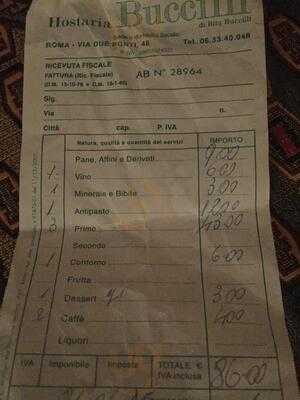 Hostaria Buccilli
di Rita Buccilli
ROMA - VIA DUE PONTI, 48 Tel. 06.33.40.048
RICEVUTA FISCALE
FATTURA (Ric. Fiscale) AB N° 28964
Sig.
Via n.
Città cap. P. IVA
Natura, qualità e quantità dei servizi IMPORTO
Pane, Affini e Derivati
1 Vino 6.00
1 Minerale e Bibite 3.00
1 Antipasto 12.00
3 Primo
Secondo
1 Contorno 6.00
Frutta
1 Dessert 3.00
2 Caffè
Liquori
IVA Imponibile Imposta TOTALE € IVA inclusa 86.00